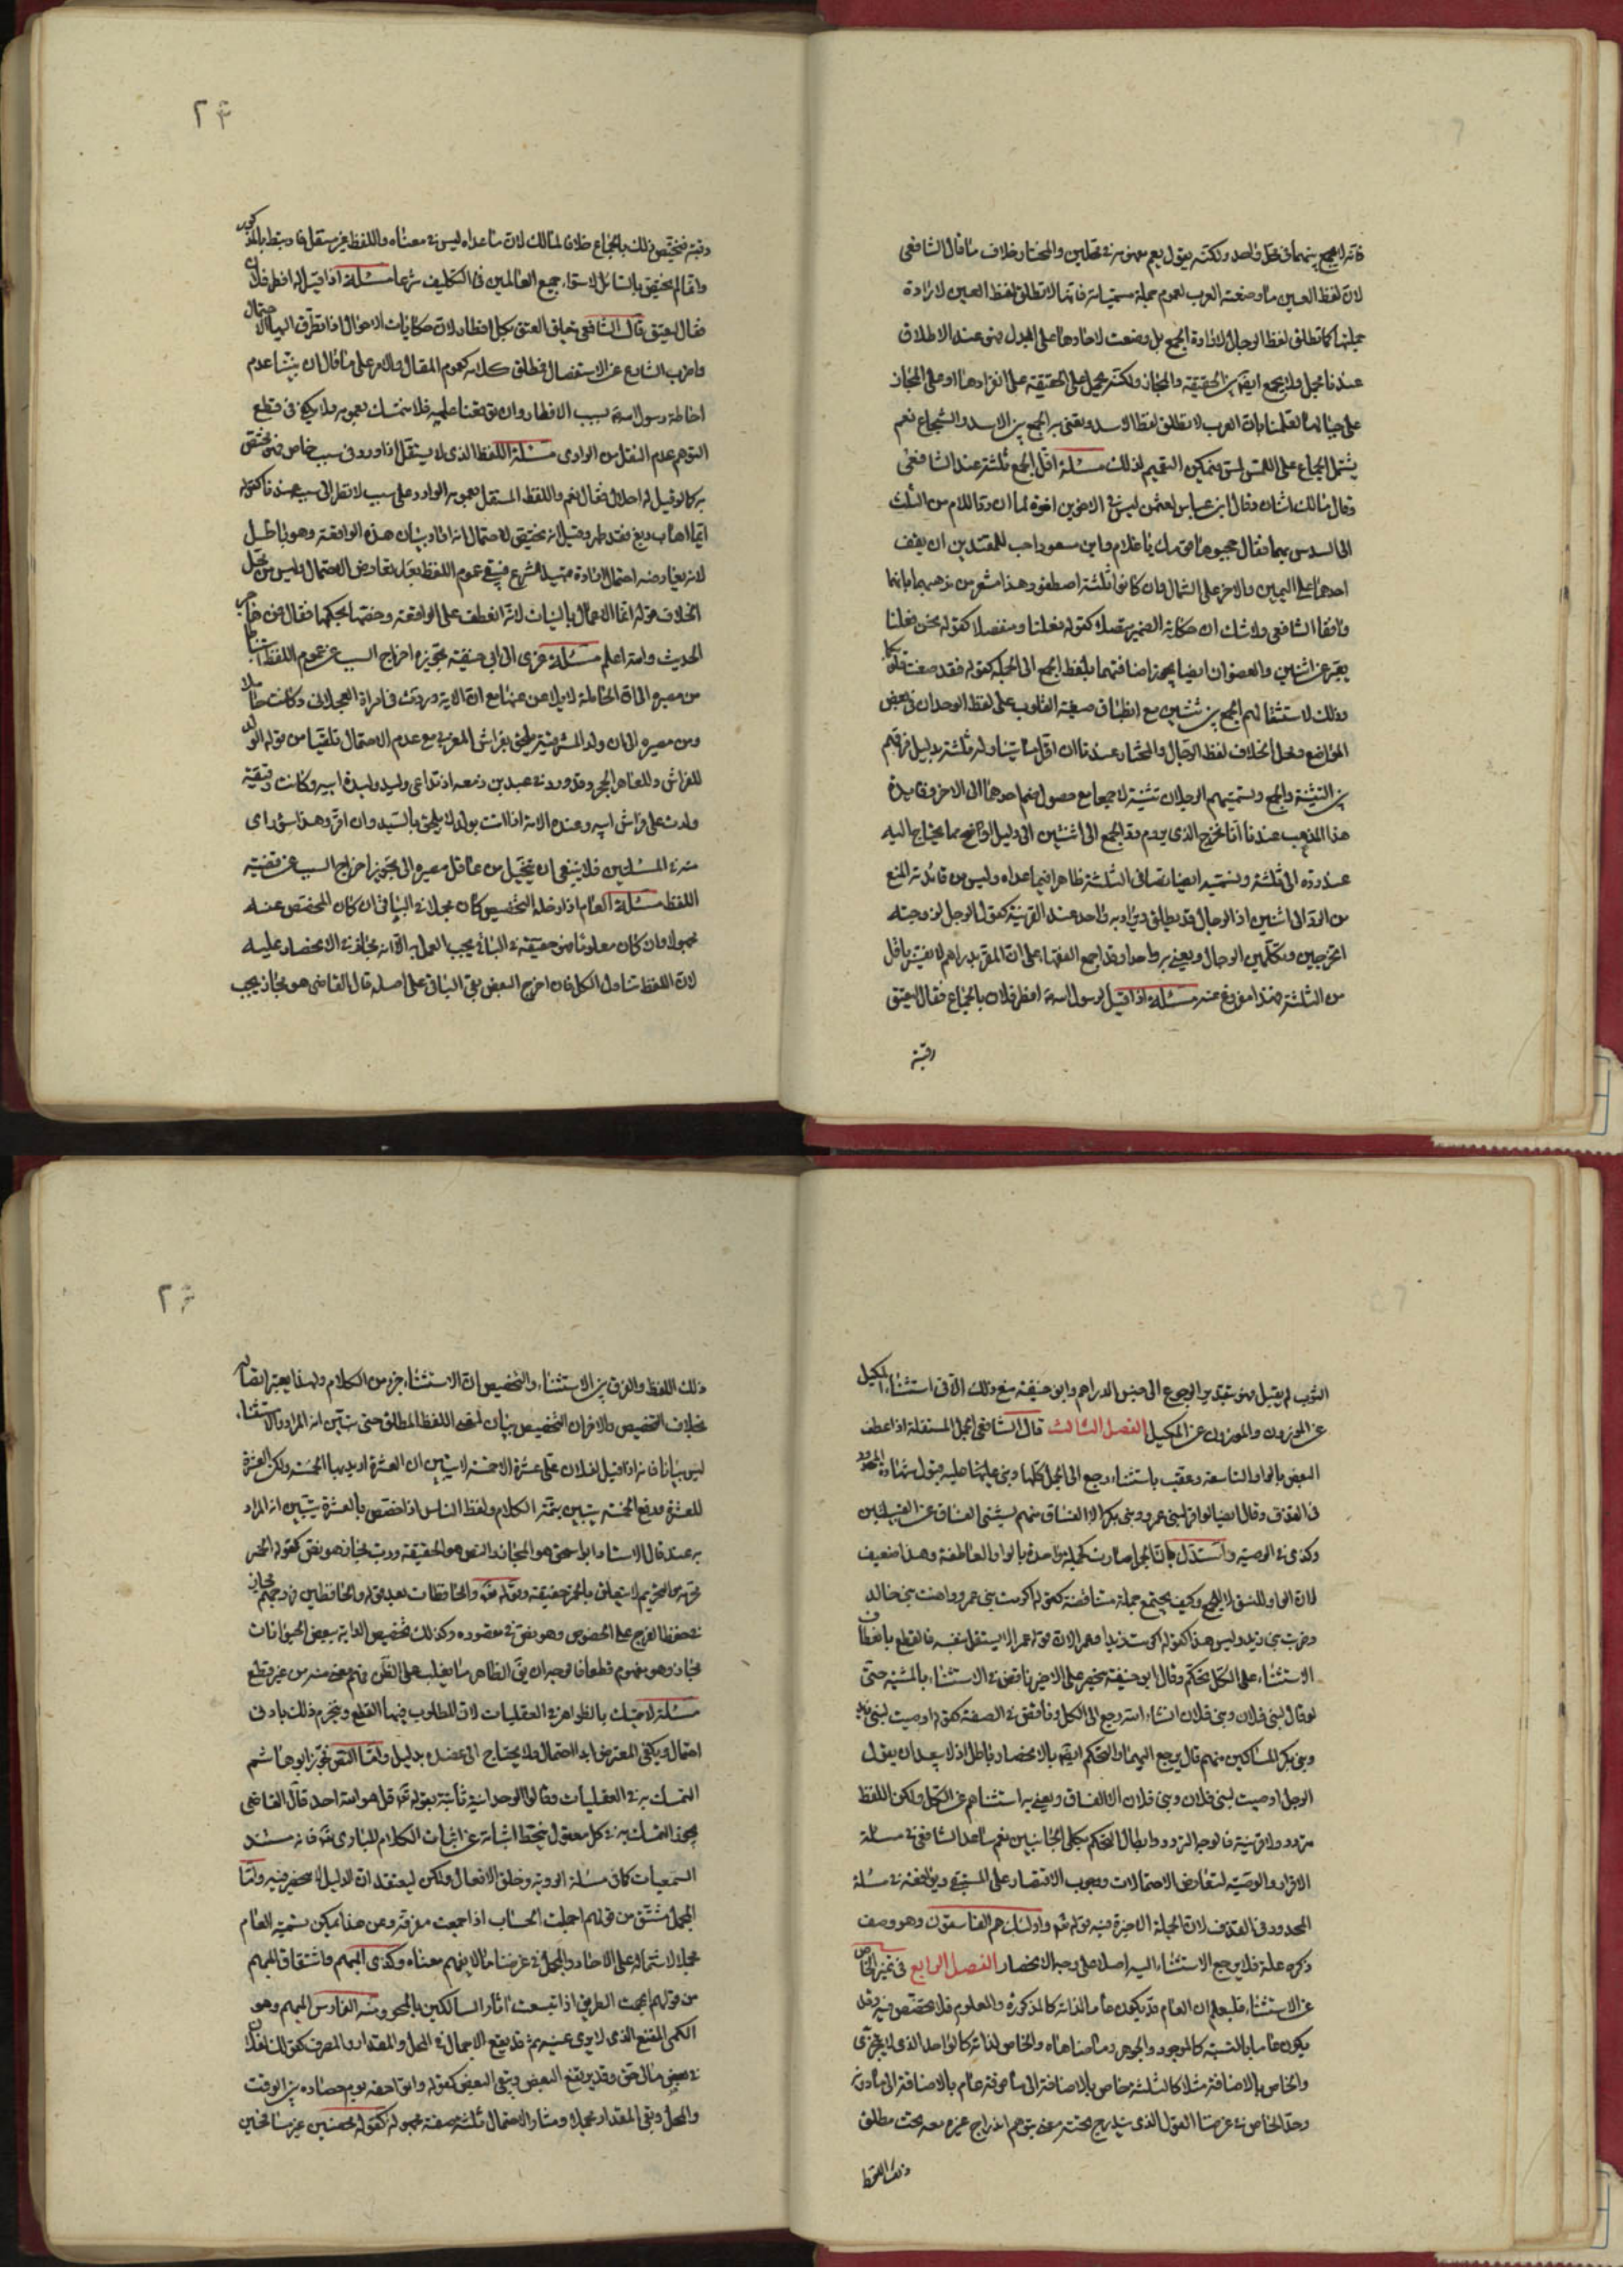 فانه لا يجمع بينهما في محل واحد ولكنه يقول يعم عمومه في محلين والمختار خلاف ما قال الشافعي
لان لفظ العين ما وضعته العرب لعموم جملة مسمياته فانها لا تطلق لفظ العين لارادة
جملتها كما تطلق لفظ الرجال لارادة الجمع بل وضعت لاحادها على البدل فهو عند الاطلاق
عندنا مجمل ولا يجمع ايضا بين الحقيقة والمجاز ولكنه يحمل على الحقيقة على انفرادها او على المجاز
على حياله لعلمنا بان العرب لا تطلق لفظ الاسد وتعني به الجمع بين الاسد والشجاع نعم
يشتمل الجماع على اللمس لمس فيمكن التعميم لذلك مسئلة اقل الجمع ثلثة عند الشافعي
وقال مالك اثنان وقال ابن عباس لعثمن ليس في الاخوين اخوة لما ان رد الام من الثلث
الى السدس بهما فقال حجبوها قومك يا غلام وابن مسعود احب للمقتدين ان يقف
احدهما على اليمين والاخر على الشمال وان كانوا ثلثة اصطفوا وهذا مشعر من مذهبهما بانهما
وافقا الشافعي ولا شك ان حكاية الضمير متصلا كقوله فعلنا ومنفصلا كقوله نحن فعلنا
يعبر عن اثنين والعضوان ايضا يجوز اضافتهما بلفظ الجمع الى الجملة كقوله فقد صغت قلوبكما
وذلك لاستثقالهم الجمع بين تثنيتين مع انطباق صيغة القلوب على لفظ الوحدان في بعض
المواضع ومحل الخلاف لفظ الرجال والمختار عندنا ان اقل ما يتناوله ثلثة بدليل فرقهم
بين التثنية والجمع وتسميتهم الرجلان تثنية لا جمعا مع حصول ضم احدهما الى الاخر وفايدة
هذا المذهب عندنا انا نخرج الذي يروم رد الجمع الى اثنين الى دليل اوضح مما يحتاج اليه
عند رده الى ثلثة ونسميه ايضا نصا في الثلثة ظاهرا فيما عداه وليس من فائدته المنع
من الرد الى اثنين اذ الرجال قد يطلق ويراد به واحد عند القرينة كقول الرجل لزوجته
اتخرجين وتكلمين الرجال ويعني به واحدا وقد اجمع الفقهاء على ان المقر بدراهم لا يفسر باقل
من الثلثة فهذا مفروغ عنه مسئلة اذا قيل لرسول الله افطر فلان بالجماع فقال يعتق
رقبة
٢٣
رقبة فيختص ذلك بالجماع خلافا لمالك لان ما عداه ليس في معناه واللفظ غير مستقل فارتبط بالمذكور
وانما لم يختص بالسائل لاستواء جميع العالمين في التكليف شرعا مسئلة اذا قيل له افطر فلان
فقال يعتق قال الشافعي يتعلق العتق بكل افطار لان حكايات الاحوال اذا تطرق اليها الاحتمال
واضرب الشارع عن الاستفصال فمطلق كلامه كعموم المقال والامر على ما قال ان تبينا عدم
احاطة رسول الله بسبب الافطار وان توقفنا عليه فلا نتمسك بعمومه ولا يكفي في قطع
التوهم عدم النقل من الراوي مسئلة اللفظ الذي لا يستقل اذا ورد في سبب خاص فهو مختص
به كما لو قيل له احلال فقال نعم واللفظ المستقل بعمومه الوارد على سبب لا نظر الى سببه عندنا كقوله
ايما اهاب دبغ فقد طهر وقيل انه يختص لاحتمال انه اراد بيان هذه الواقعة وهو باطل
لانه يعارضه احتمال ارادة تمهيد الشرع فبقي عموم اللفظ بعد تعارض الاحتمال وليس من محل
الخلاف قوله انما الاعمال بالنيات لانه انعطف على الواقعة وخصها بحكمها فقال فمن هاجر
الحديث والله اعلم مسئلة عزي الى ابي حنيفة تجويزه اخراج السبب عن عموم اللفظ استنباطا
من مصيره الى ان الحاملة لا يلاعن عنها مع ان الاية وردت في امراة العجلاني وكانت حاملا
ومن مصيره الى ان ولد المشرقية يلحق بفراش المغربي مع عدم الاحتمال تلقيا من قوله الولد
للفراش وللعاهر الحجر وقد ورد في عبد بن زمعه اذ تداعى وليد وليدة ابيه وكانت رقيقة
ولدت على فراش ابيه وعنده الامة اذا اتت بولد لا يلحق بالسيد وان اقر وهذا سوء راى
منه في المسئلتين فلا ينبغي ان يتخيل من عاقل مصيره الى تجويز اخراج السبب عن قضية
اللفظ مسئلة العام اذا دخله التخصيص كان مجملا في الباقي ان كان المخصص عنه
مجهولا وان كان معلوما فهو حقيقة في الباقي يجب العمل به الا انه مجاز في الاختصار عليه
لان اللفظ تناول الكل فان اخرج البعض بقي الباقي على اصله قال القاضي هو مجاز يجب
الثوب لم يقبل فهو شديد الرجوع الى جنس الدراهم وابو حنيفة منع ذلك الا في استثناء المكيل
عن الموزون والموزون عن المكيل الفصل الثالث قال الشافعي الجمل المستقلة اذا عطف
البعض بالواو الناسقة وعقب باستثناء رجع الى الجمل كلها وبنى عليها عليه قبول شهادة المحدود
في القذف وقال ايضا لو اقر لبني عمرو وبني بكر الا الفساق منهم يستثنى الفساق عن القبيلتين
وكذى في الوصية واستدل بان الجمل صارت كجملة واحدة بالواو العاطفة وهذا ضعيف
لان الواو للنسق لا للجمع وكيف يجتمع جملة متناقضة كقوله اكرمت بني عمرو واهنت بني خالد
وضربت بني زيد وليس هذا كقوله اكرمت زيدا وعمرا لان قوله عمرا لا يستقل بنفسه فالقطع بانعطاف
الاستثناء على الكل تحكم وقال ابو حنيفة ينحصر على الاخير وناقض في الاستثناء بالمشية حتى
لو قال لبني فلان وبني فلان انشاء الله رجع الى الكل ووافق في الصفة كقوله اوصيت لبني زيد
وبني بكر المساكين منهم قال يرجع اليهما والتحكم ايضا بالانحصار باطل اذ لا يبعد ان يقول
الرجل اوصيت لبني فلان وبني فلان الا الفساق ويعني به استثناهم عن الكل ولكن اللفظ
متردد ولا قرينة فالوجه التردد وابطال التحكم بكلي الجانبين نعم ساعد الشافعي في مسئلة
الاقرار والوصية لتعارض الاحتمالات ووجوب الاقتصار على المستيقن ويناقضه في مسئلة
المحدود في القذف لان الجملة الاخيرة فيه قوله تعم واولئك هم الفاسقون وهو وصف
ذكره علة فلا يرجع الاستثناء اليه اصلا على وجه الانحصار الفصل الرابع في تمييز الخاص
عن الاستثناء فليعلم ان العام قد يكون عاما لذاته كالمذكور والمعلوم فلا مخصص فيه وقد
يكون عاما بالنسبة كالموجود والجوهر وما ضاهاه والخاص لذاته كالواحد الذي لا يتجزى
والخاص بالاضافة مثلا كالثلثة خاص بالاضافة الى ما فوقه عام بالاضافة الى ما دونه
وحد الخاص في غرضنا القول الذي يندرج تحته معنى يتوهم اندراج غيره معه تحت مطلق
ذلك اللفظ
٢٤
ذلك اللفظ والفرق بين الاستثناء والتخصيص ان الاستثناء جزء من الكلام ولهذا يعتبر اتصاله
بخلاف التخصيص والاخر ان التخصيص بيان لمقصد اللفظ المطلق حتى يتبين انه المراد والاستثناء
ليس بيانا فانه اذا قيل لفلان علي عشرة الا خمسة لا يتبين ان العشرة اريد بها الخمسة ولكن العشرة
للعشرة ورفع الخمسة يتبين بتتمة الكلام ولفظ الناس اذا اختص بالعشرة يتبين انه المراد
به عنده قال الاستاذ ابو اسحق هو المجاز والنص هو الحقيقة ورب مجاز هو نص كقوله الخمر
محرمة فالتحريم لا يتعلق بالخمر حقيقة وقوله تعم والحافظات بعد قوله والحافظين فروجهم مجاز
في حفظ الفرج على الخصوص وهو نص في مقصوده وكذلك تخصيص الدابة ببعض الحيوانات
مجاز وهو مفهوم قطعا فالوجه ان يق الظاهر ما يغلب على الظن فهم معنى منه من غير قطع
مسئلة لا يتمسك بالظواهر في العقليات لان المطلوب فيها القطع وينخرم ذلك بادنى
احتمال ويكفي المعترض ابدا الاحتمال فلا يحتاج الى عضده بدليل واما النص فجوز ابو هاشم
التمسك به في العقليات وقالوا الوحدانية ثابتة بقوله تعم قل هو الله احد قال القاضي
يجوز التمسك به في كل معقول ينحط اثباته عن اثبات الكلام للباري تعم فانه مستند
السمعيات كما في مسئلة الروية وخلق الافعال ولكن ليعتقد ان الدليل لا ينحصر فيه واما
المجمل مشتق من قولهم اجملت الحساب اذا جمعت متفرقه وعن هذا يمكن تسمية العام
مجملا لاشتماله على الاحاد والمجمل في غرضنا ما لا يفهم معناه وكذى المبهم واشتقاق المبهم
من قولهم ابهمت الطريق اذا تبعت اثار السالكين بالمحو ومنه الفارس المبهم وهو
الكمى المقنع الذي لا يرى عينه ثم قد يقع الاجمال في المحل والمقدار والمصرف كقوله لفلان
في بعض مالي حق وقد يرتفع البعض ويبقى البعض كقوله واتوا حقه يوم حصاده بين الوقت
والمحل وبقي المقدار مجملا ومثار الاحتمال ثلثة صفة مجهولة كقوله محصنين غير مسافحين